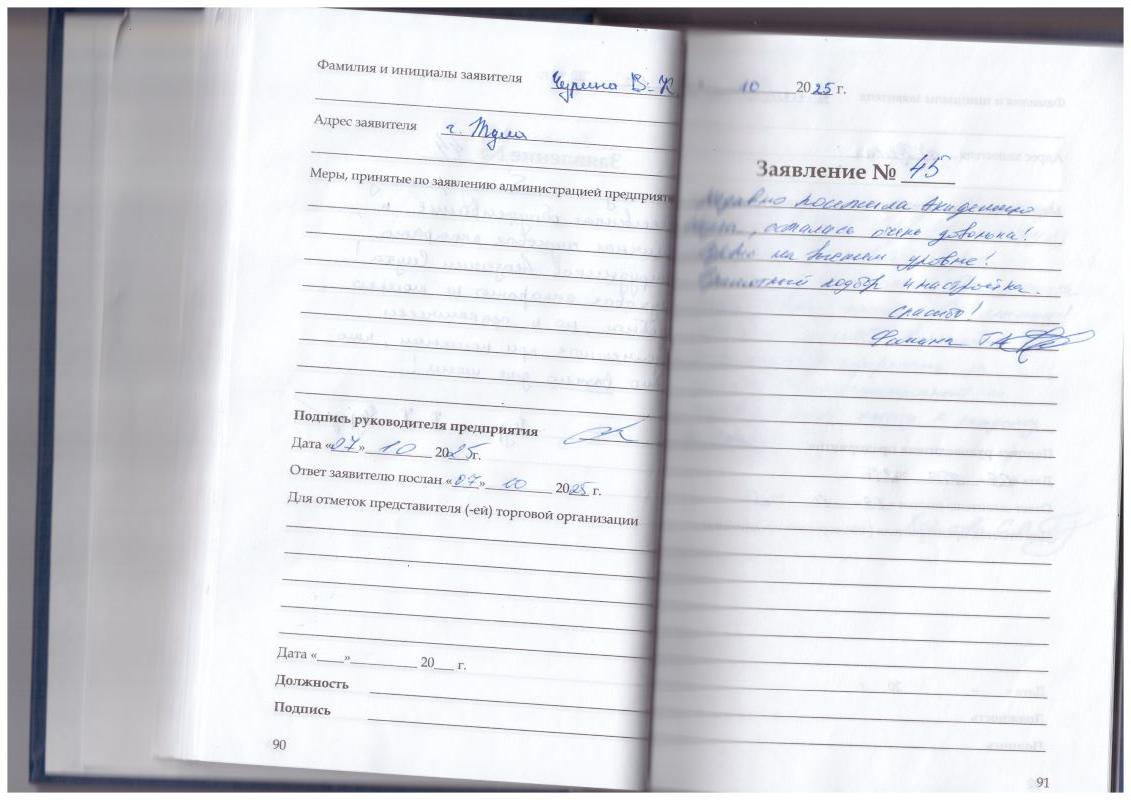 Фамилия и инициалы заявителя Чурина В.К
Адрес заявителя г. Тула
Меры, принятые по заявлению администрацией предприяти
Подпись руководителя предприятия
Дата «07» 10 2025г.
Ответ заявителю послан «07» 10 2025 г.
Для отметок представителя (-ей) торговой организации
Дата «___»__________ 20___ г.
Должность
Подпись
90
10 2025 г.
Заявление № 45
посетила Академию
, осталась очень довольна!
на высшем уровне!
подбор и настройка.
спасибо!
91